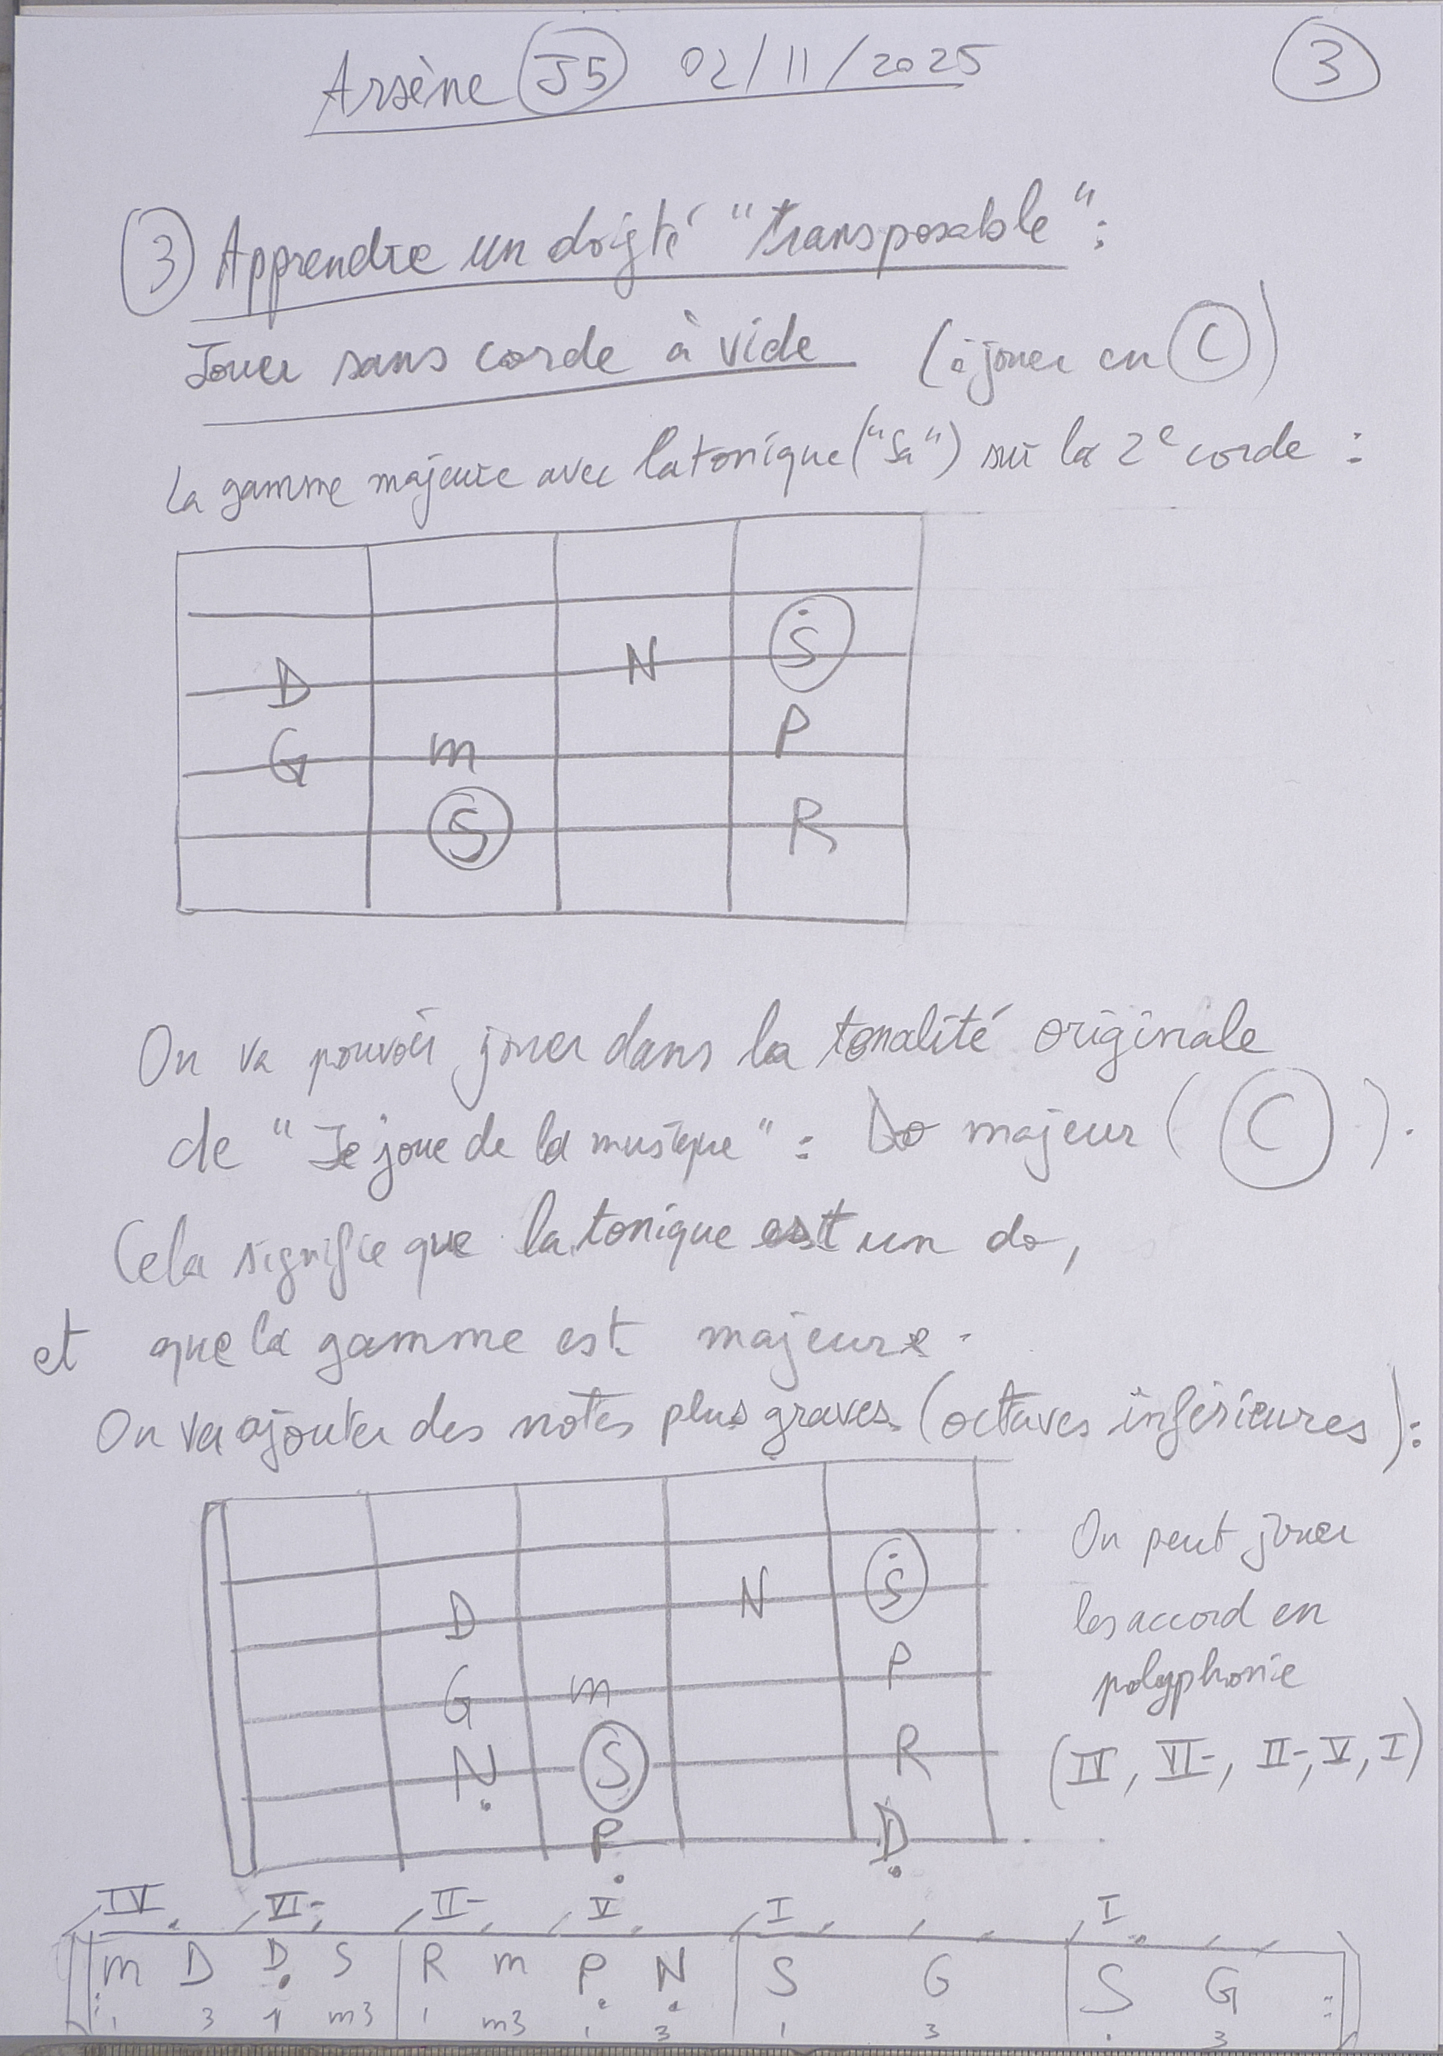 Arsène J5 02/11/2025
3
3 Apprendre un doigté "transposable":
Jouer sans corde à vide (à jouer en C)
La gamme majeure avec la tonique ("Sa") sur la 2e corde :
D N Ṡ
G m P
S R
On va pouvoir jouer dans la tonalité originale
de "Je joue de la musique" : Do majeur ( C ).
Cela signifie que la tonique est un do,
et que la gamme est majeure.
On va ajouter des notes plus graves (octaves inférieures) :
D N Ṡ
G m P
Ṇ S R
P̣ Ḍ
On peut jouer
les accord en
polyphonie
(IV, VI-, II-, V, I)
IV VI- II- V I I
m D Ḍ S R m P̣ Ṇ S G S G
1 3 1 m3 1 m3 1 3 1 3 3